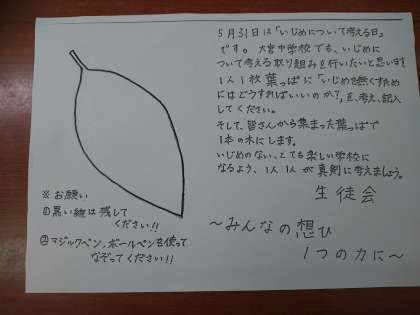 5月31日は「いじめについて考える日」
です。大宮中学校でも、いじめに
ついて考える取り組みを行いたいと思います
1人1枚葉っぱに「いじめを無くすため
にはどうすればいいのか?」を、考え、記入
してください。
そして、皆さんから集まった葉っぱで
1本の木にします。
いじめのない、とても楽しい学校に
なるよう、1人1人が真剣に考えましょう。
生徒会
〜みんなの想ひ
1つの力に〜
※お願い
①黒い線は残して
ください!!
②マジックペン、ボールペンを使って
なぞってください!!